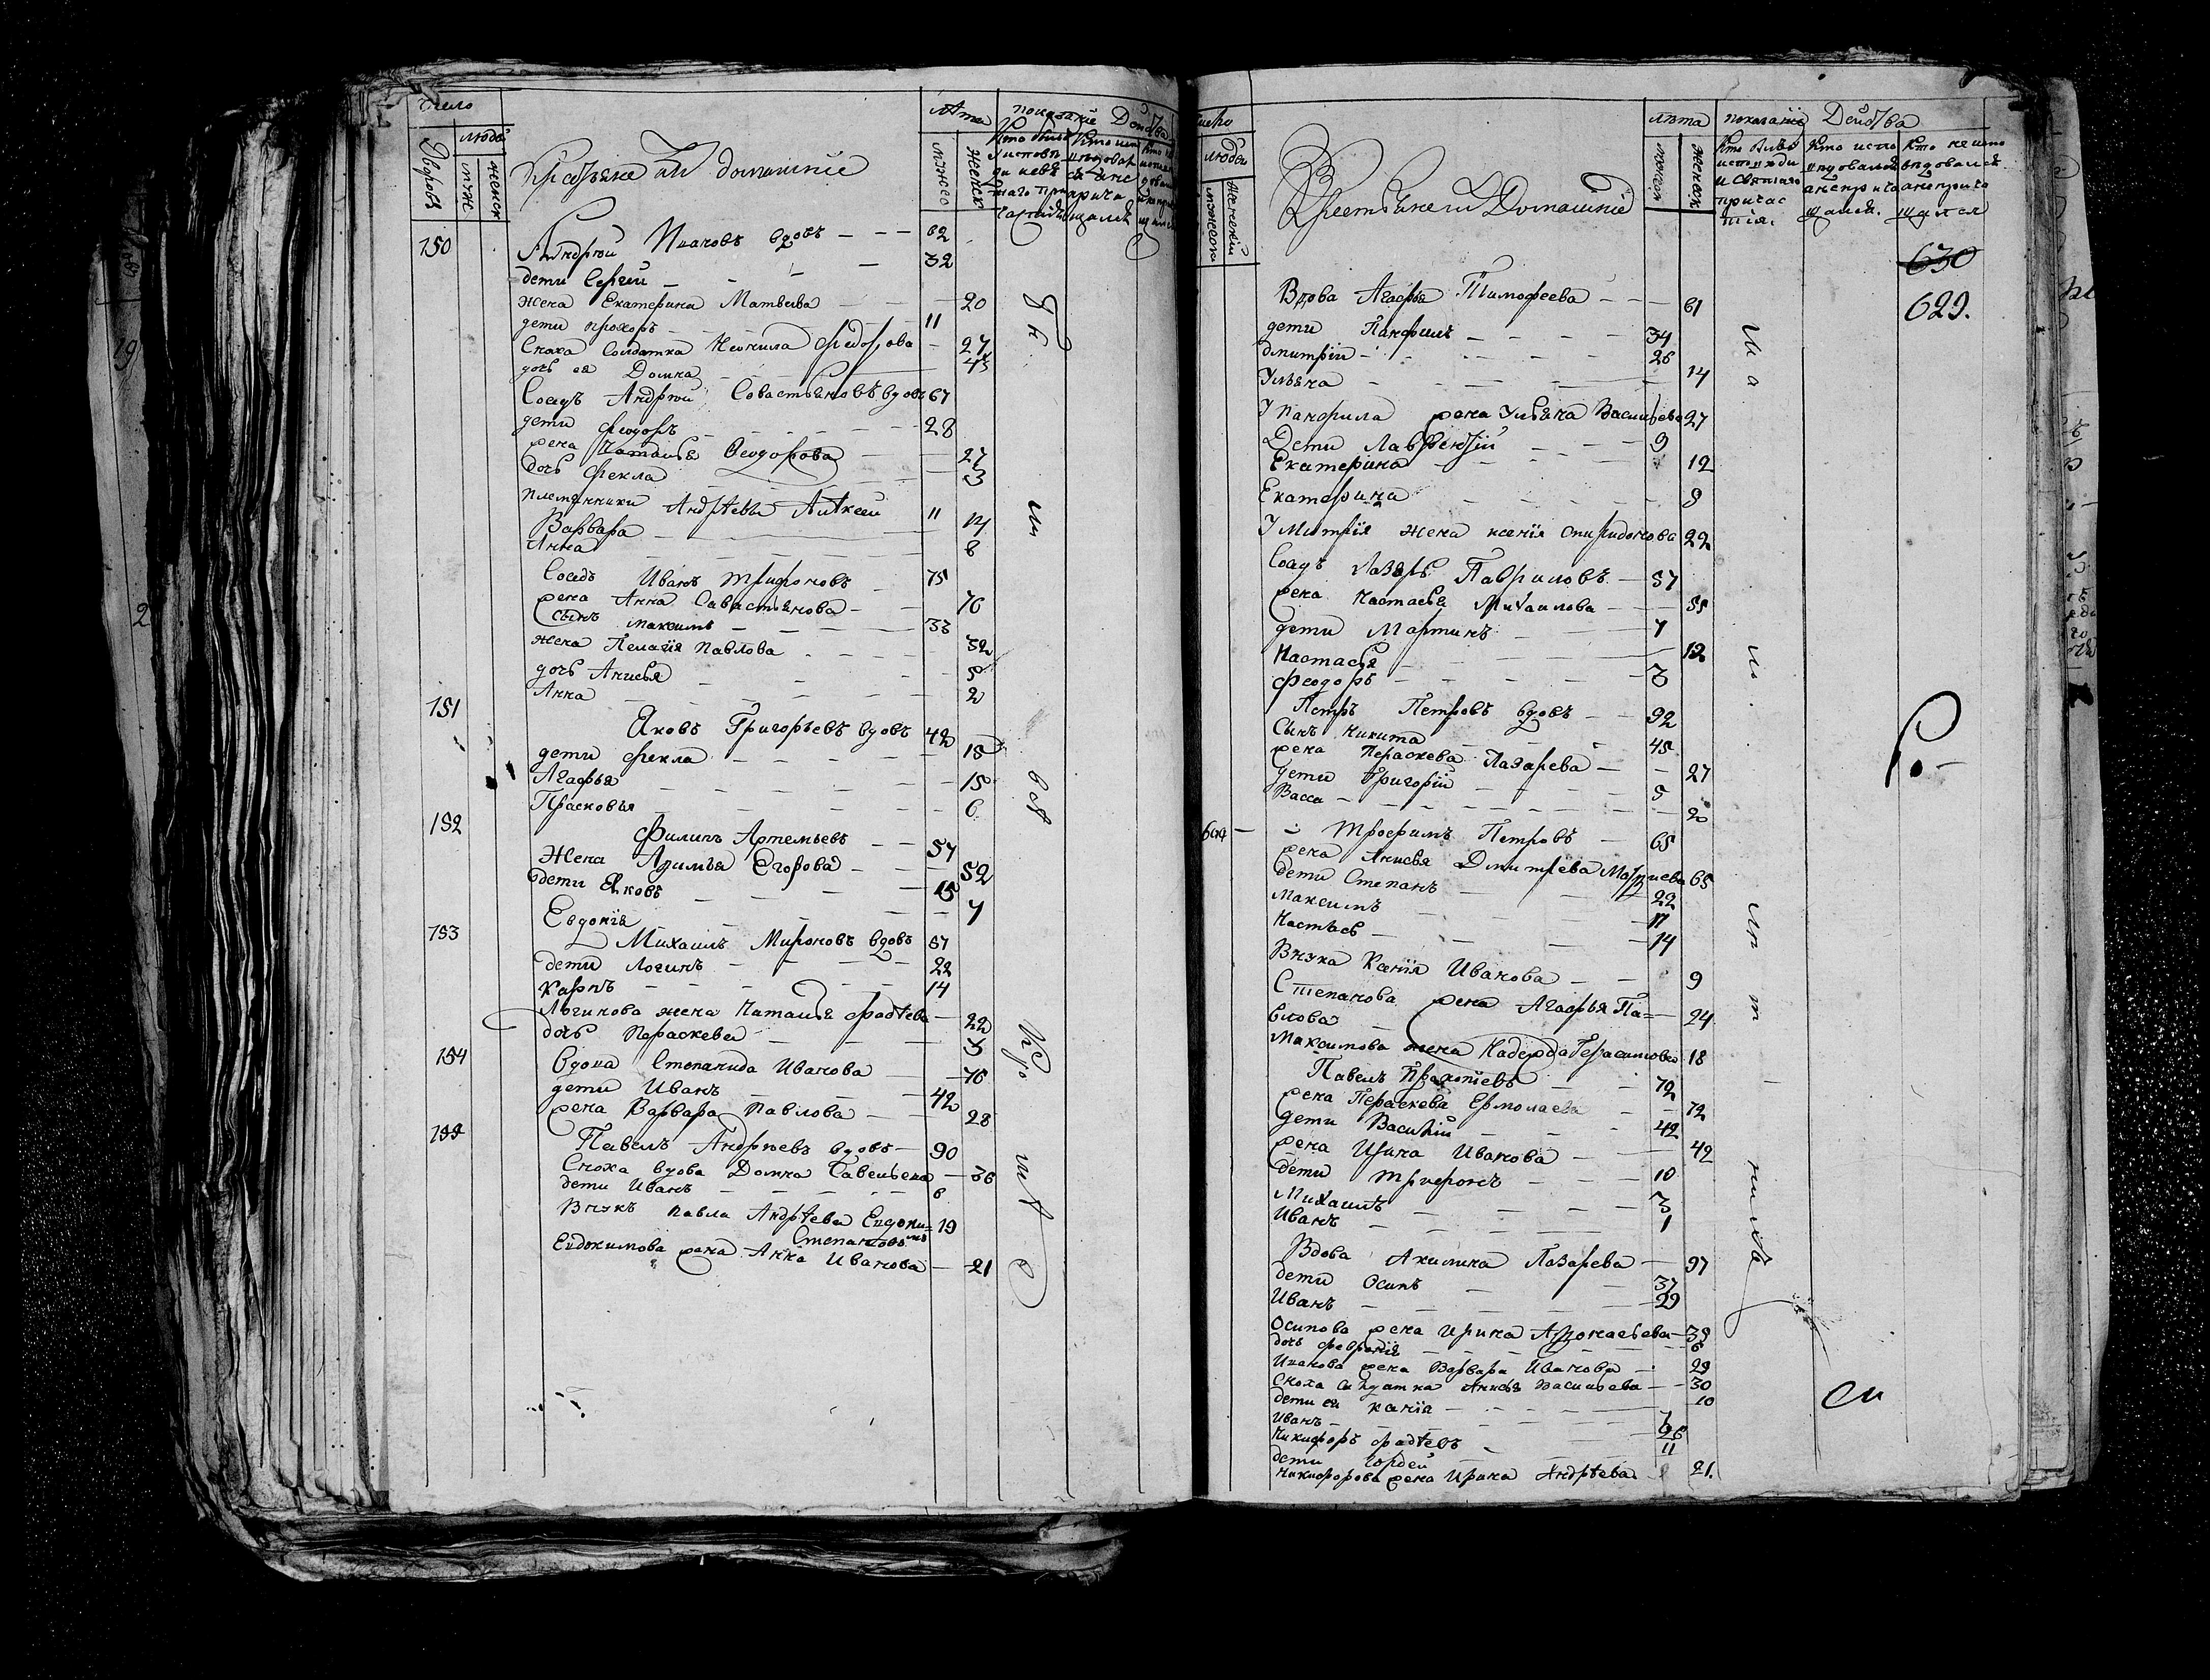 Число
Дворовъ
людей
муж
женск
Крестьяне Ихъ домашние
лѣта
мужес
женск
показание Действа
150
Андрей Ивановъ вдовъ 62
дети Сергей 32
жена Екатерина Матвеева 20
дети прохоръ 11
Сноха Солдатка Неонила Федорова 27
дочь ея Домна
Соседъ Андрей Савостьяновъ вдовъ 67
дети Феодоръ 28
жена Наталья Феодорова 27
дочь Фекла 3
племянники Андреевы Алексей 11
Варвара 14
Анна 8
Соседъ Иванъ Трифоновъ 75
жена Анна Савастьянова 70
сынъ Максимъ 33
жена Пелагія Павлова 32
дочь Анисья 5
Анна 2
151
Яковъ Григорьевъ вдовъ 42
дети Фекла 18
Агафья 15
Прасковья 6
152
Филипъ Артемьевъ 57
Жена Егорова 52
дети Яковъ 15
Евдокія 7
153
Михаилъ Мироновъ вдовъ 57
дети Логинъ 22
Карпъ 14
Логинова жена Наталья Фадѣева 22
дочь Параскева 3
154
Вдова Степанида Иванова 76
дети Иванъ 42
жена Варвара Павлова 28
155
Павелъ Андреевъ вдовъ 90
Сноха вдова Домна Савельева 36
дети Иванъ 6
Внукъ павла Андрѣева Евдоки= 19
мъ Степановъ
Евдокимова жена Анна Иванова 21
число
людей
мужеск
женскій
Крестьяне и Домашніе
лѣта
мужеск
женск
показаніе Действа
Кто былъ
исповѣди
и Святаго
причас
тія.
Кто испо
вѣдовался
а не прича
щался.
Кто не испо
вѣдовался
а не прича
щался
630
629.
Вдова Агафья Тимофеева 61
дети Панфилъ 34
дмитрій 26
Ульяна 14
У Панфила жена Ульяна Васильева 27
Дети Лаврентій 9
Екатерина 12
Екатерина 9
У Митрія жена ксенія спиридонова 22
Соседъ Лазарь Гавриловъ 57
жена Настасья Михаилова 55
дети Мартинъ 7
Настасья 12
Феодоръ 3
Петръ Петровъ вдовъ 92
Сынъ Никита 45
жена Параскева Лазарева 27
дети Григорій 5
Васса 2
Трофимъ Петровъ 65
жена Анисья Дмитріева 65
дети Степанъ 22
Максимъ 17
Настась 14
Внука Ксенія Иванова 9
Степанова жена Агафья Па= 24
влова
Максимова жена Надежда Герасимова 18
Павелъ Прокопіевъ 72
жена Параскева Ермолаева 72
дети Василій 42
жена Ирина Иванова 42
дети Трифонъ 10
Михаилъ 3
Иванъ 1
Вдова Акилина Лазарева 97
дети Осипъ 37
Иванъ 29
Осипова жена ирина Афонасьева 39
дочь Февронія 6
Иванова жена Варвара Иванова 29
Сноха солдатка Анисья Васильева 30
дети ея Ксенія 10
Иванъ
Никифоръ Фадѣевъ 26
дети Гордей 11
Никифорова жена Ирина Андрѣева 21.